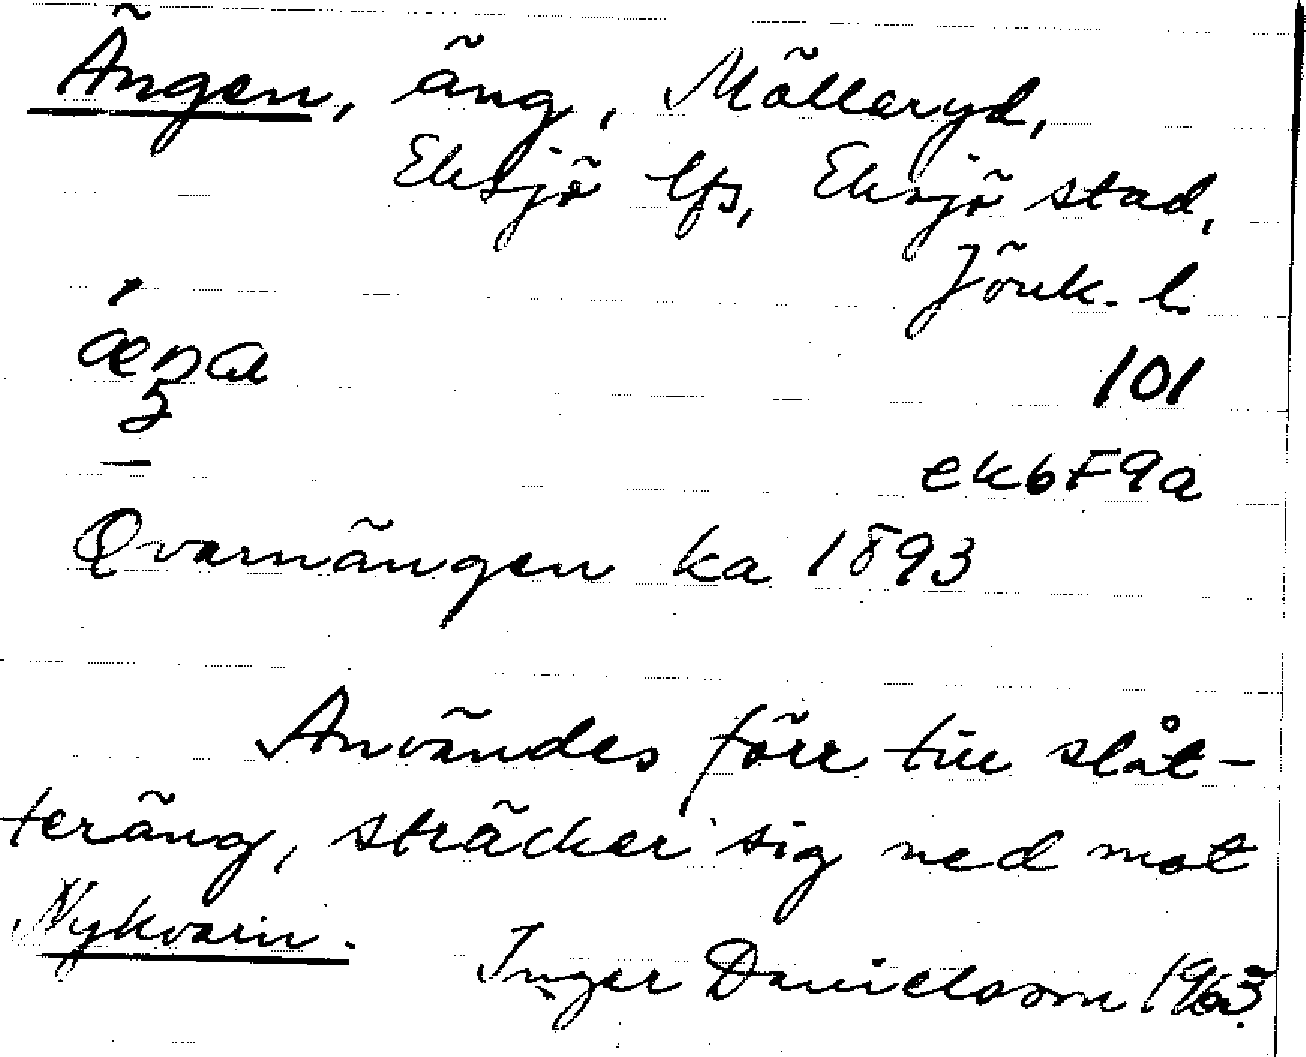 Ängen, äng, Mälleryd,
Eksjö lfs, Eksjö stad,
Jönk. l.
101
ek6F9a
Qvarnängen ka 1893
Användes förr till slåt-
teräng, sträcker sig ned mot
Nykvarn.
Inger Danielsson 1963.